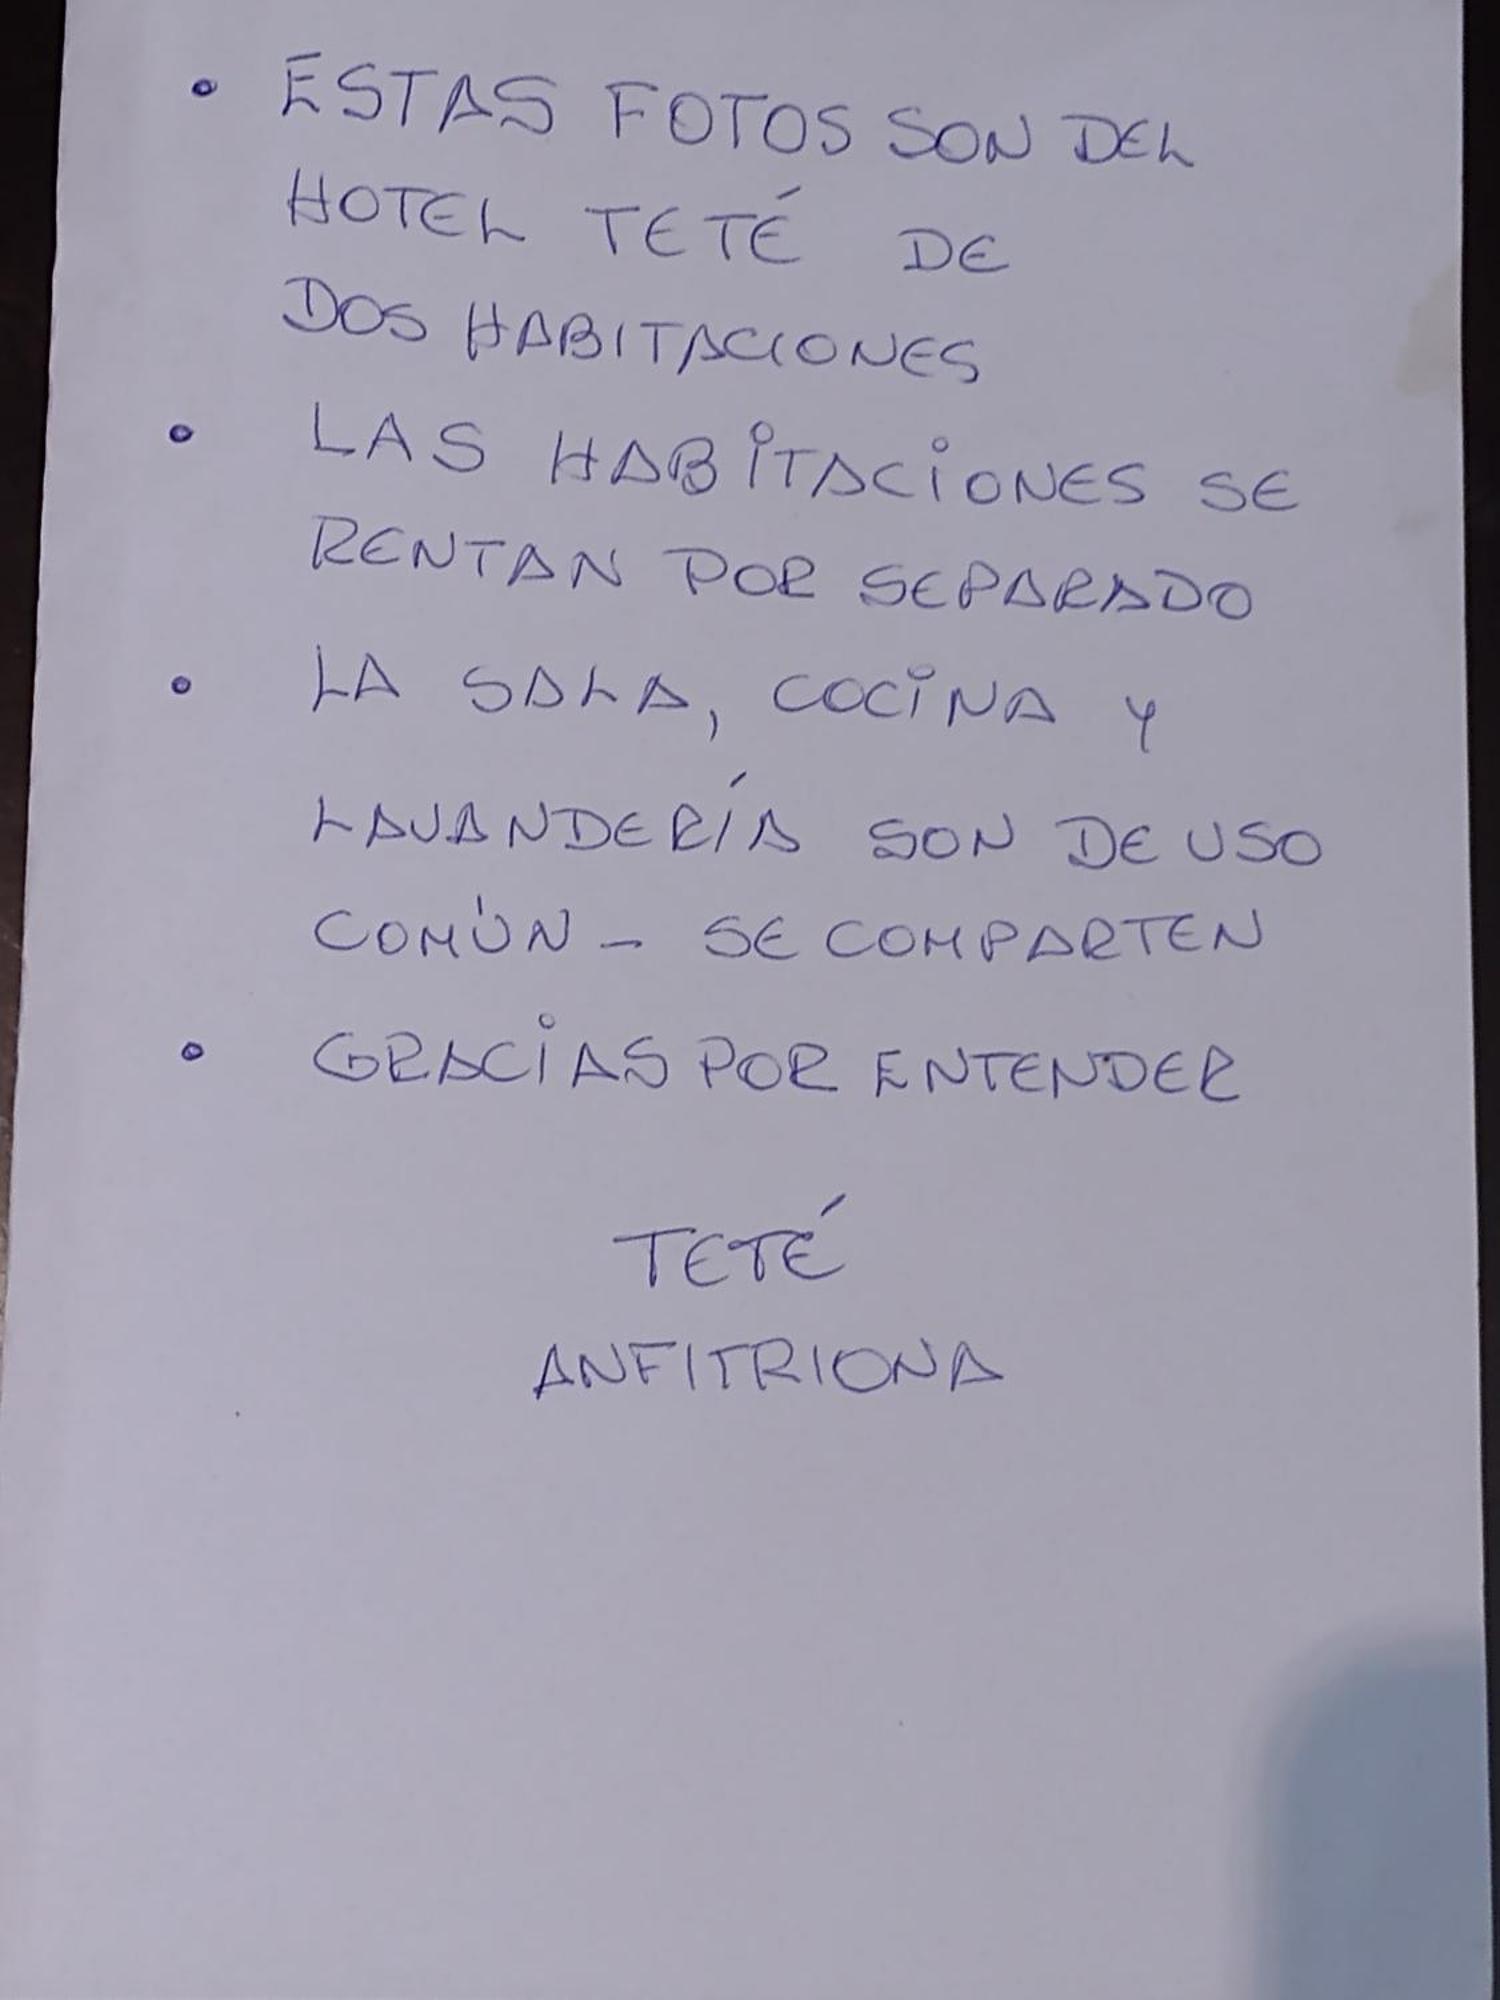 • ESTAS FOTOS SON DEL
HOTEL TETÉ DE
DOS HABITACIONES
• LAS HABITACIONES SE
RENTAN POR SEPARADO
• LA SALA, COCINA Y
LAVANDERÍA SON DE USO
COMÚN - SE COMPARTEN
• GRACIAS POR ENTENDER
TETÉ
ANFITRIONA